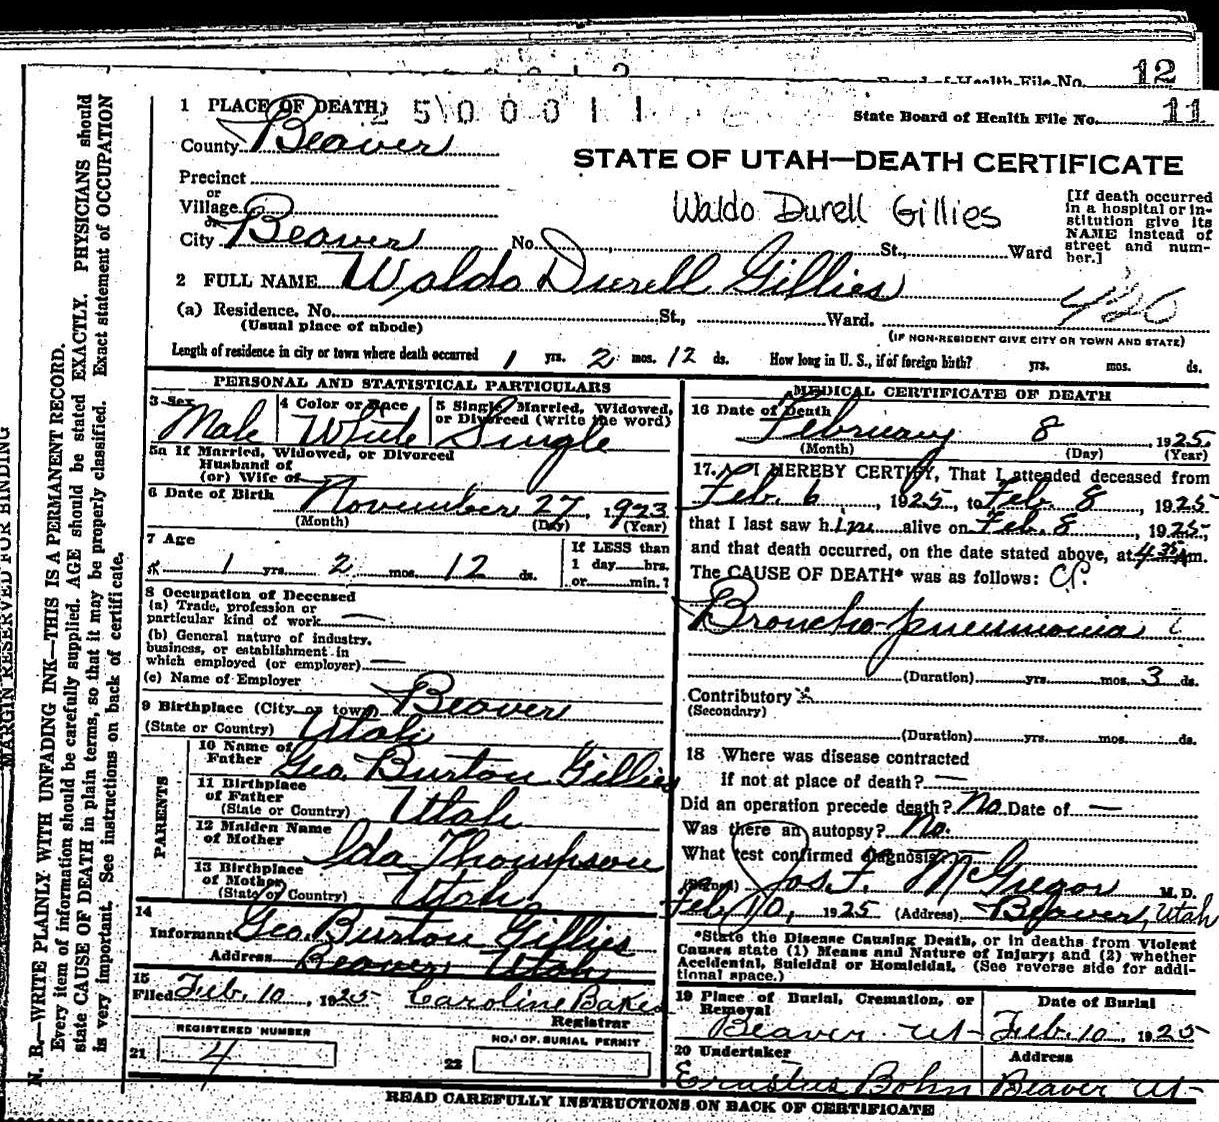 Board of Health File No. 12
1 PLACE OF DEATH 2 5 0 0 0 1 1
State Board of Health File No. 11
County Beaver
STATE OF UTAH—DEATH CERTIFICATE
Precinct
or
Village
Waldo Durell Gillies
[If death occurred in a hospital or institution give its NAME instead of street and number.]
or
City Beaver No. St., Ward
2 FULL NAME Waldo Durell Gillies
426
(a) Residence. No. St., Ward.
(Usual place of abode)
(IF NON-RESIDENT GIVE CITY OR TOWN AND STATE)
Length of residence in city or town where death occurred 1 yrs. 2 mos. 12 ds. How long in U. S., if of foreign birth? yrs. mos. ds.
PERSONAL AND STATISTICAL PARTICULARS
3 Sex
Male
4 Color or Race
White
5 Single, Married, Widowed, or Divorced (write the word)
Single
5a If Married, Widowed, or Divorced
Husband of
(or) Wife of
6 Date of Birth November 27, 1923
(Month) (Day) (Year)
7 Age
1 yrs. 2 mos. 12 ds.
If LESS than
1 day hrs.
or min.?
8 Occupation of Deceased
(a) Trade, profession or
particular kind of work —
(b) General nature of industry,
business, or establishment in
which employed (or employer) —
(c) Name of Employer
9 Birthplace (City or town) Beaver
(State or Country) Utah
PARENTS
10 Name of Father Geo. Burton Gillies
11 Birthplace of Father
(State or Country) Utah
12 Maiden Name of Mother Ida Thompson
13 Birthplace of Mother
(State or Country) Utah
14
Informant Geo. Burton Gillies
Address Beaver Utah
15
Filed Feb. 10, 1925 Caroline Baker
Registrar
REGISTERED NUMBER
21 4
NO. OF BURIAL PERMIT
22
MEDICAL CERTIFICATE OF DEATH
16 Date of Death
February 8, 1925
(Month) (Day) (Year)
17. I HEREBY CERTIFY, That I attended deceased from
Feb. 6, 1925, to Feb. 8, 1925
that I last saw him alive on Feb. 8, 1925,
and that death occurred, on the date stated above, at 4:35 A m.
The CAUSE OF DEATH* was as follows:
Broncho-pneumonia
(Duration) yrs. mos. 3 ds.
Contributory
(Secondary)
(Duration) yrs. mos. ds.
18 Where was disease contracted
If not at place of death? —
Did an operation precede death? No Date of —
Was there an autopsy? No.
What test confirmed diagnosis?
(Signed) Jos. F. McGregor M. D.
Feb. 10, 1925 (Address) Beaver, Utah
*State the Disease Causing Death, or in deaths from Violent
Causes state (1) Means and Nature of Injury; and (2) whether
Accidental, Suicidal or Homicidal. (See reverse side for additional space.)
19 Place of Burial, Cremation, or Removal
Beaver Ut
Date of Burial
Feb. 10, 1925
20 Undertaker
Erastus Bohn
Address
Beaver Ut
READ CAREFULLY INSTRUCTIONS ON BACK OF CERTIFICATE
MARGIN RESERVED FOR BINDING
N. B.—WRITE PLAINLY WITH UNFADING INK—THIS IS A PERMANENT RECORD.
Every item of information should be carefully supplied. AGE should be stated EXACTLY. PHYSICIANS should
state CAUSE OF DEATH in plain terms, so that it may be properly classified. Exact statement of OCCUPATION
is very important. See instructions on back of certificate.